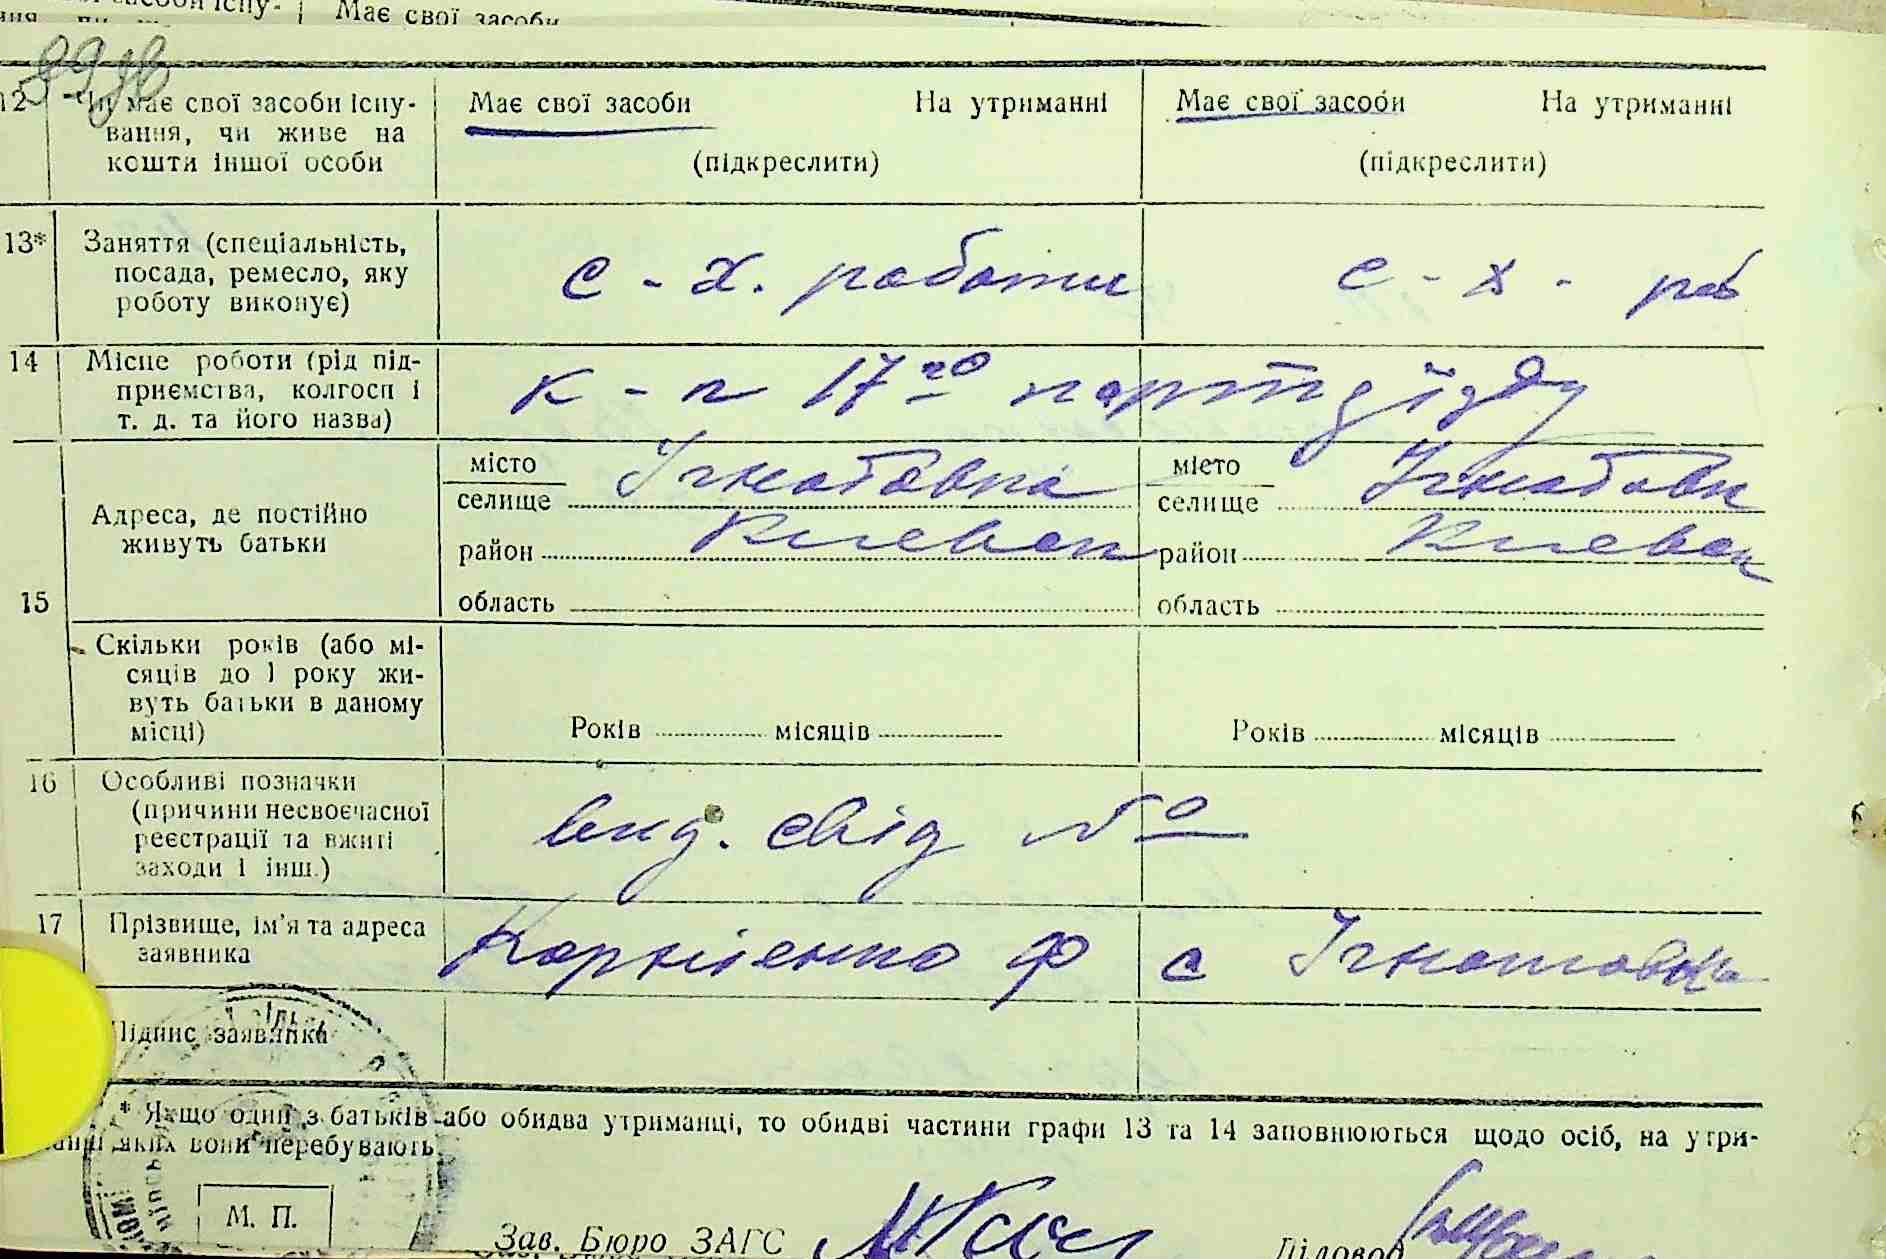 Має свої засоби
12 Чи має свої засоби існу-
вання, чи живе на
кошти іншої особи
Має свої засоби На утриманні
(підкреслити)
Має свої засоби На утриманні
(підкреслити)
13* Заняття (спеціальність,
посада, ремесло, яку
роботу виконує)
с - х. работи
с - х - раб
14 Місце роботи (рід під-
приємства, колгосп і
т. д. та його назва)
к - п 17го партзїзду
15 Адреса, де постійно
живуть батьки
місто Ігнатовка
селище
район Киевск
область
місто Ігнатовк
селище
район Киевск
область
Скільки років (або мі-
сяців до 1 року жи-
вуть батьки в даному
місці)
Років місяців
Років місяців
16 Особливі позначки
(причини несвоєчасної
реєстрації та вжиті
заходи і інш.)
вид. свід №
17 Прізвище, ім'я та адреса
заявника
Корнієнко Ф с Ігнатовка
Підпис заявника
* Якщо один з батьків або обидва утриманці, то обидві частини графи 13 та 14 заповнюються щодо осіб, на утри-
манні яких вони перебувають.
М. П.
Зав. Бюро ЗАГС
Діловод